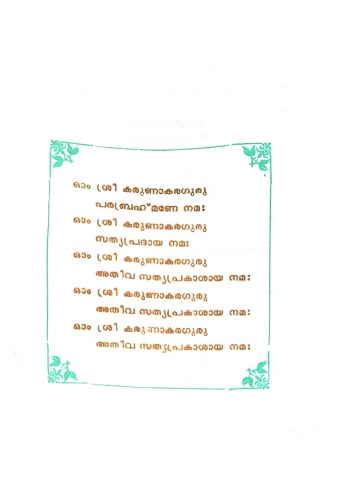 ഓം ശ്രീ കരുണാകരഗുരു
പരബ്രഹ്മണേ നമഃ
ഓം ശ്രീ കരുണാകരഗുരു
സത്യപ്രദായ നമഃ
ഓം ശ്രീ കരുണാകരഗുരു
അതീവ സത്യപ്രകാശായ നമഃ
ഓം ശ്രീ കരുണാകരഗുരു
അതീവ സത്യപ്രകാശായ നമഃ
ഓം ശ്രീ കരുണാകരഗുരു
അതീവ സത്യപ്രകാശായ നമഃ